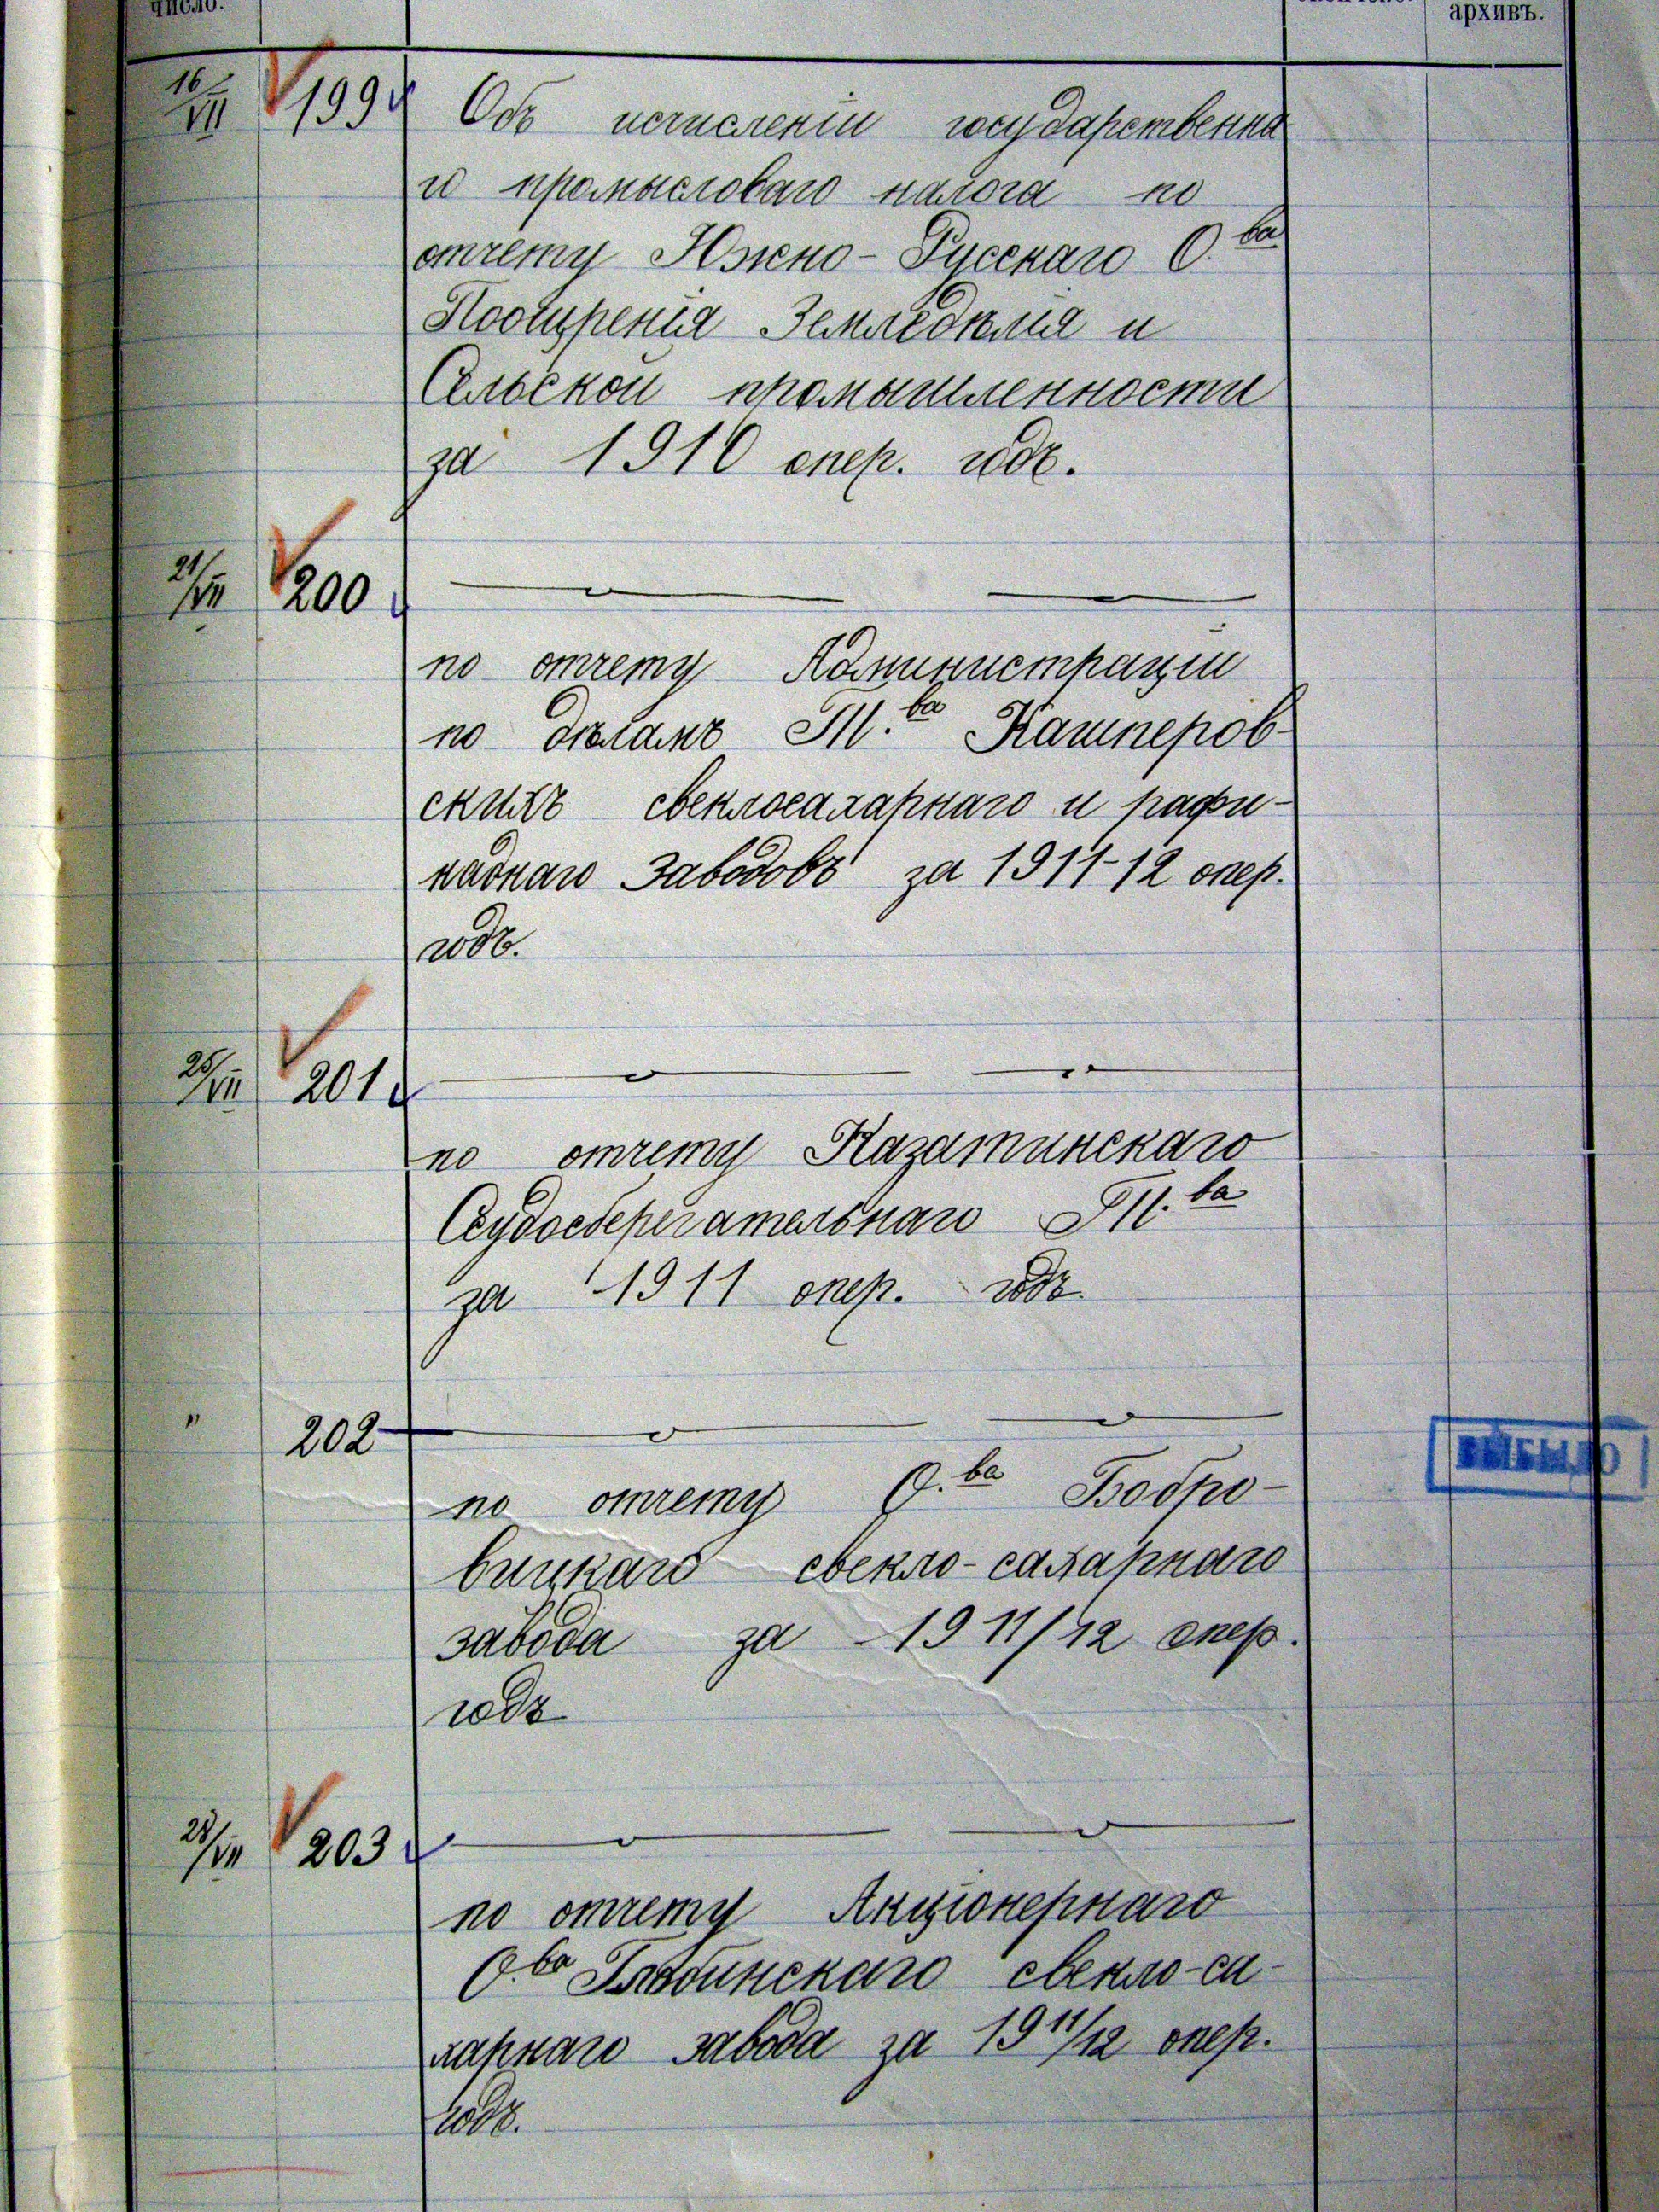 число.
архивъ.
16/VII 199 Объ исчисленіи государственна
го промысловаго налога по
отчету Южно-Русскаго О.ва
Поощренія Земледѣлія и
Сельской промышленности
за 1910 опер. годъ.
21/VII 200
по отчету Администраціи
по дѣламъ Т.ва Кашперов-
скихъ свеклосахарнаго и рафи-
наднаго Заводовъ за 1911-12 опер.
годъ.
25/VII 201
по отчету Казатинскаго
Ссудосберегательнаго Т.ва
за 1911 опер. годъ.
" 202
по отчету О.ва Бобро-
вицкаго свекло-сахарнаго
завода за 1911/12 опер.
годъ
ВЫБЫЛО
28/VII 203
по отчету Акціонернаго
О.ва Глобинскаго свекло-са-
харнаго завода за 1911/12 опер.
годъ.